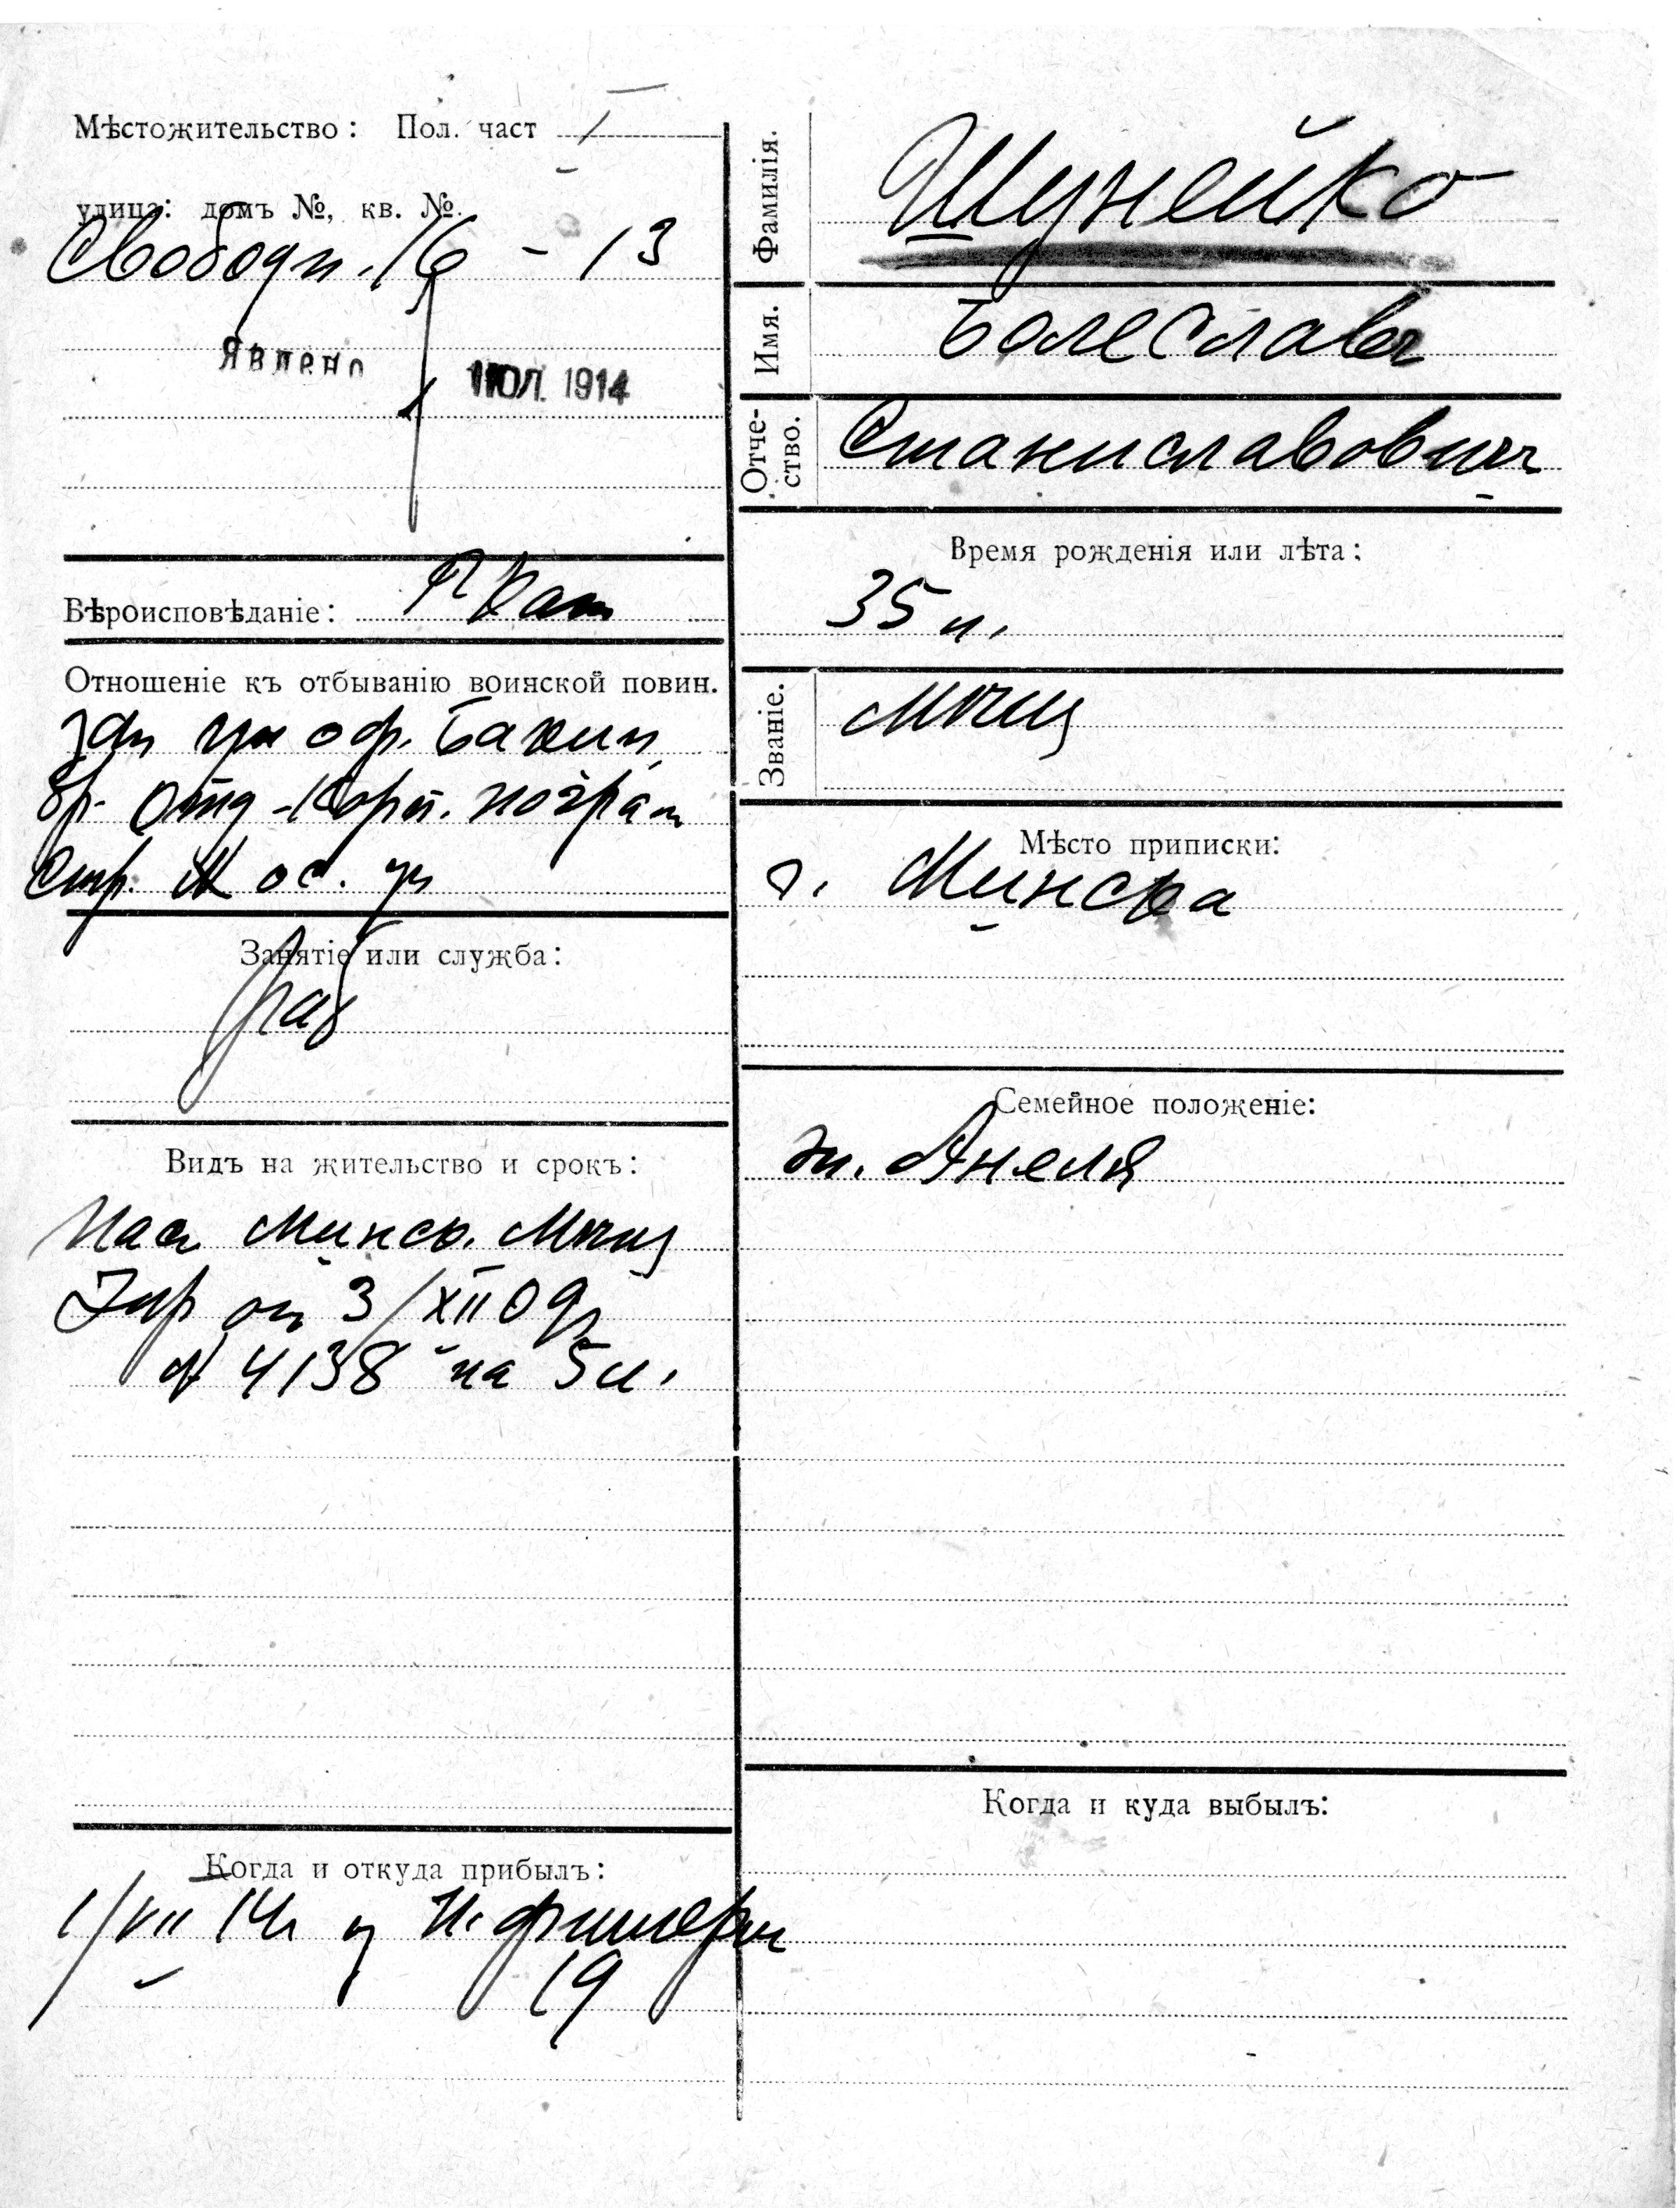 Мѣстожительство: Пол. част I
улица: домъ №, кв. №.
Свободн. 16 - 13
Явлено 1 ІЮЛ. 1914
Вѣроисповѣданіе: Р Кат
Отношеніе къ отбыванію воинской повин.
зап ун оф. Бакин
бр. Отд. Корп. погран
Стр.
Занятіе или служба:
раб
Видъ на жительство и срокъ:
Пасп Минск. Мѣщ
Упр от 3/XII 09 г
№ 4138 на 5 л.
Когда и откуда прибылъ:
1/VII 14 г
19
Фамилія.
Шунейко
Имя.
Болеславъ
Отчество.
Станиславович
Время рожденія или лѣта:
35 л.
Званіе.
Мѣщ
Мѣсто приписки:
г. Минска
Семейное положеніе:
ж. Анеля
Когда и куда выбылъ: